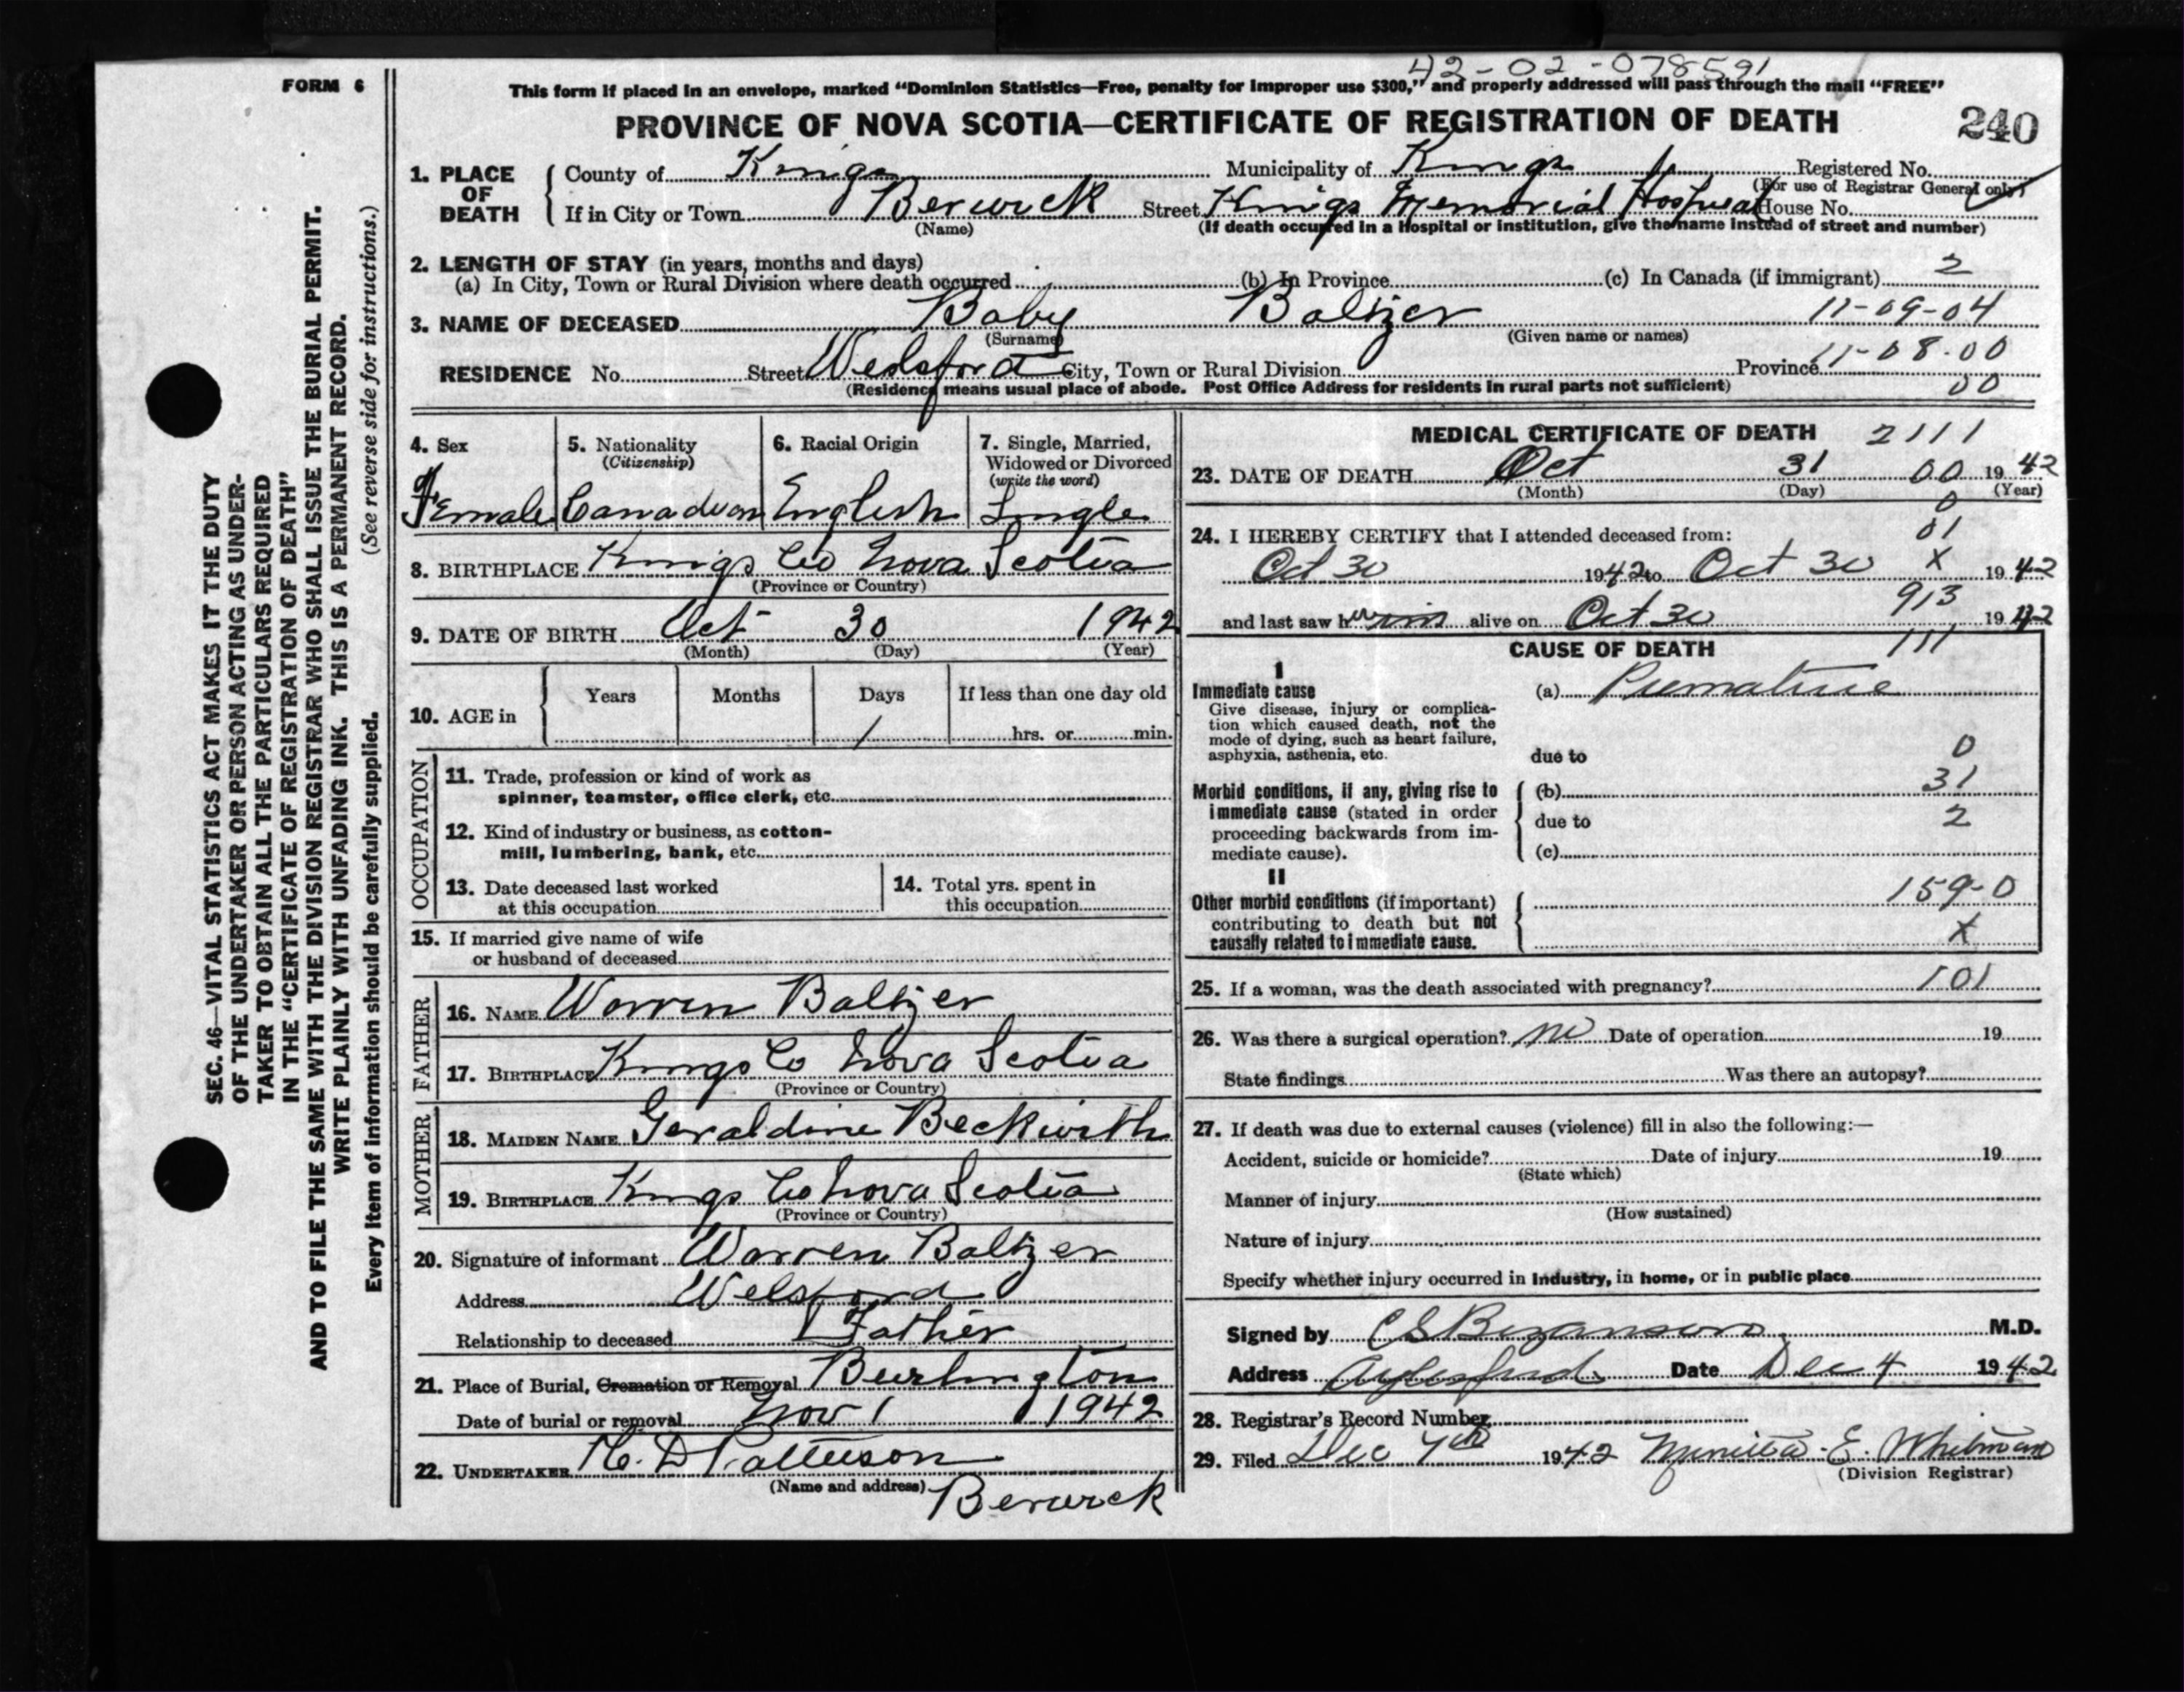 42-02-078591
FORM 6
This form if placed in an envelope, marked "Dominion Statistics—Free, penalty for improper use $300," and properly addressed will pass through the mail "FREE"
PROVINCE OF NOVA SCOTIA—CERTIFICATE OF REGISTRATION OF DEATH 240
SEC. 46—VITAL STATISTICS ACT MAKES IT THE DUTY
OF THE UNDERTAKER OR PERSON ACTING AS UNDER-
TAKER TO OBTAIN ALL THE PARTICULARS REQUIRED
IN THE "CERTIFICATE OF REGISTRATION OF DEATH"
AND TO FILE THE SAME WITH THE DIVISION REGISTRAR WHO SHALL ISSUE THE BURIAL PERMIT.
WRITE PLAINLY WITH UNFADING INK. THIS IS A PERMANENT RECORD.
Every item of information should be carefully supplied. (See reverse side for instructions.)
1. PLACE OF DEATH County of Kings Municipality of Kings Registered No.
(For use of Registrar General only)
If in City or Town Berwick Street Kings Memorial Hospital House No.
(Name) (If death occurred in a hospital or institution, give the name instead of street and number)
2. LENGTH OF STAY (in years, months and days)
(a) In City, Town or Rural Division where death occurred (b) In Province (c) In Canada (if immigrant) 2
3. NAME OF DECEASED Baby Baltzer 11-09-04
(Surname) (Given name or names)
RESIDENCE No. Street Welsford City, Town or Rural Division Province 11-08-00
(Residence means usual place of abode. Post Office Address for residents in rural parts not sufficient) 00
4. Sex 5. Nationality (Citizenship) 6. Racial Origin 7. Single, Married, Widowed or Divorced (write the word)
Female Canadian English Single
8. BIRTHPLACE Kings Co Nova Scotia
(Province or Country)
9. DATE OF BIRTH Oct 30 1942
(Month) (Day) (Year)
10. AGE in Years Months Days If less than one day old
1 hrs. or min.
OCCUPATION
11. Trade, profession or kind of work as
spinner, teamster, office clerk, etc.
12. Kind of industry or business, as cotton-
mill, lumbering, bank, etc.
13. Date deceased last worked
at this occupation
14. Total yrs. spent in
this occupation
15. If married give name of wife
or husband of deceased
FATHER
16. NAME Warren Baltzer
17. BIRTHPLACE Kings Co Nova Scotia
(Province or Country)
MOTHER
18. MAIDEN NAME Geraldine Beckwith
19. BIRTHPLACE Kings Co Nova Scotia
(Province or Country)
20. Signature of informant Warren Baltzer
Address Welsford
Relationship to deceased Father
21. Place of Burial, Cremation or Removal Burlington
Date of burial or removal Nov 1 1942
22. UNDERTAKER H. D Patterson
(Name and address) Berwick
MEDICAL CERTIFICATE OF DEATH 2111
23. DATE OF DEATH Oct 31 00 1942
(Month) (Day) (Year)
0
24. I HEREBY CERTIFY that I attended deceased from: 01
Oct 30 1942 to Oct 30 X 1942
913
and last saw her alive on Oct 30 1942
CAUSE OF DEATH 111
I
Immediate cause (a) Premature
Give disease, injury or complica-
tion which caused death, not the
mode of dying, such as heart failure,
asphyxia, asthenia, etc. due to 0
Morbid conditions, if any, giving rise to (b) 31
immediate cause (stated in order due to 2
proceeding backwards from im-
mediate cause). (c)
II
Other morbid conditions (if important) 159-0
contributing to death but not
causally related to immediate cause. X
25. If a woman, was the death associated with pregnancy? 101
26. Was there a surgical operation? no Date of operation 19
State findings Was there an autopsy?
27. If death was due to external causes (violence) fill in also the following:—
Accident, suicide or homicide? Date of injury 19
(State which)
Manner of injury
(How sustained)
Nature of injury
Specify whether injury occurred in industry, in home, or in public place
Signed by C S Bezanson M.D.
Address Aylesford Date Dec 4 1942
28. Registrar's Record Number
29. Filed Dec 7th 1942 E. Whitman
(Division Registrar)